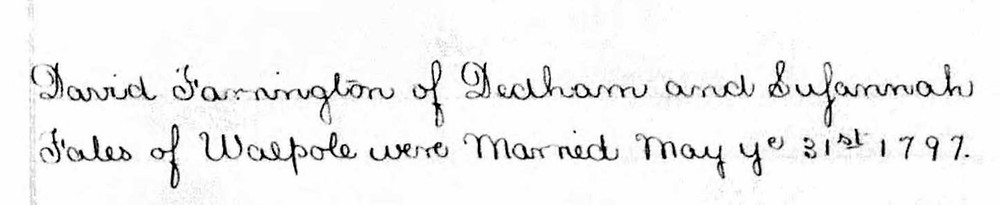 David Farrington of Dedham and Suſannah
Fales of Walpole were Married May yᵉ 31ˢᵗ 1797.